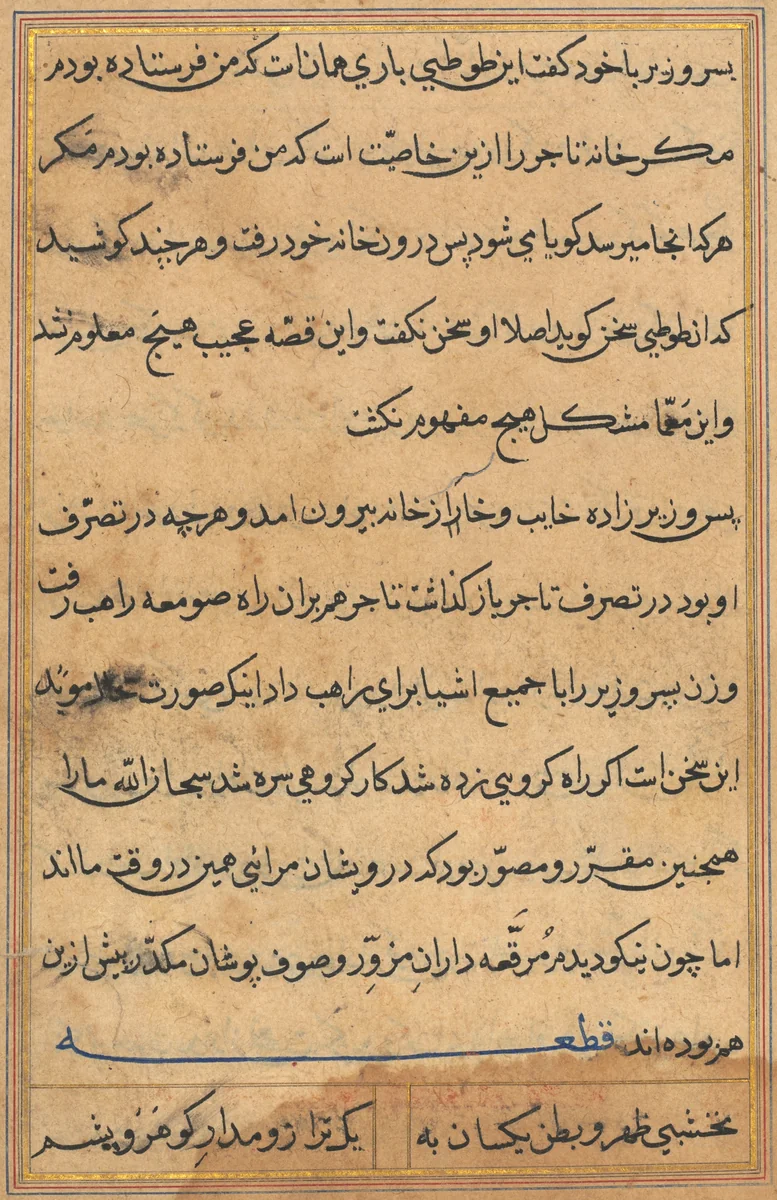 پسر وزیر با خود کفت این طوطیی باری همان است که من فرستاده بودم
مکر خانهٔ تاجر را ازین خاصیّت است که من فرستاده بودم مَکر
هرکه انجا میرسد کویا می شود پس درون خانه خود رفت و هر چند کوشید
که ان طوطیی سخن کوید اصلا او سخن نکفت و این قصّه عجیب هیَچ معلوم نشد
و این مَعمّا مشکل هیچ مفهوم نکشت
پس وزیر زاده خایب و خار از خانه بیرون امد و هرچه در تصرّف
او بود در تصرف تاجر باز کذاشت تاجر هم بران راه صومعه راهب رفت
و زن پسر وزیر را با جمیع اشیا برای راهب داد اینک صورت حال موید
این سخن است اکر راه کروهیی زده شد کار کروهی سره شد سبحان الله ما را
همچنین مقرّر و مصوّر بود که درویشان مرائیی همین در وقت ما اند
اما چون نیکو دیدم مُرقَّعه دارانِ مزوِّر و صوف پوشان مکدّر پیش ازین
هم بوده اند قطعه
نخشبیی ظهر و بطن یکسان به
یک ترازو مدارِ کوهَر و پشم